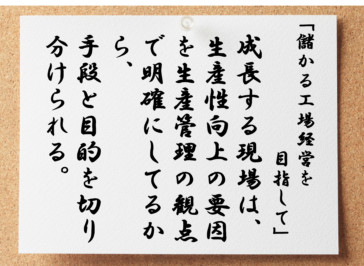 「儲かる工場経営を
目指して」
成長する現場は、
生産性向上の要因
を生産管理の観点
で明確にしてるか
ら、
手段と目的を切り
分けられる。